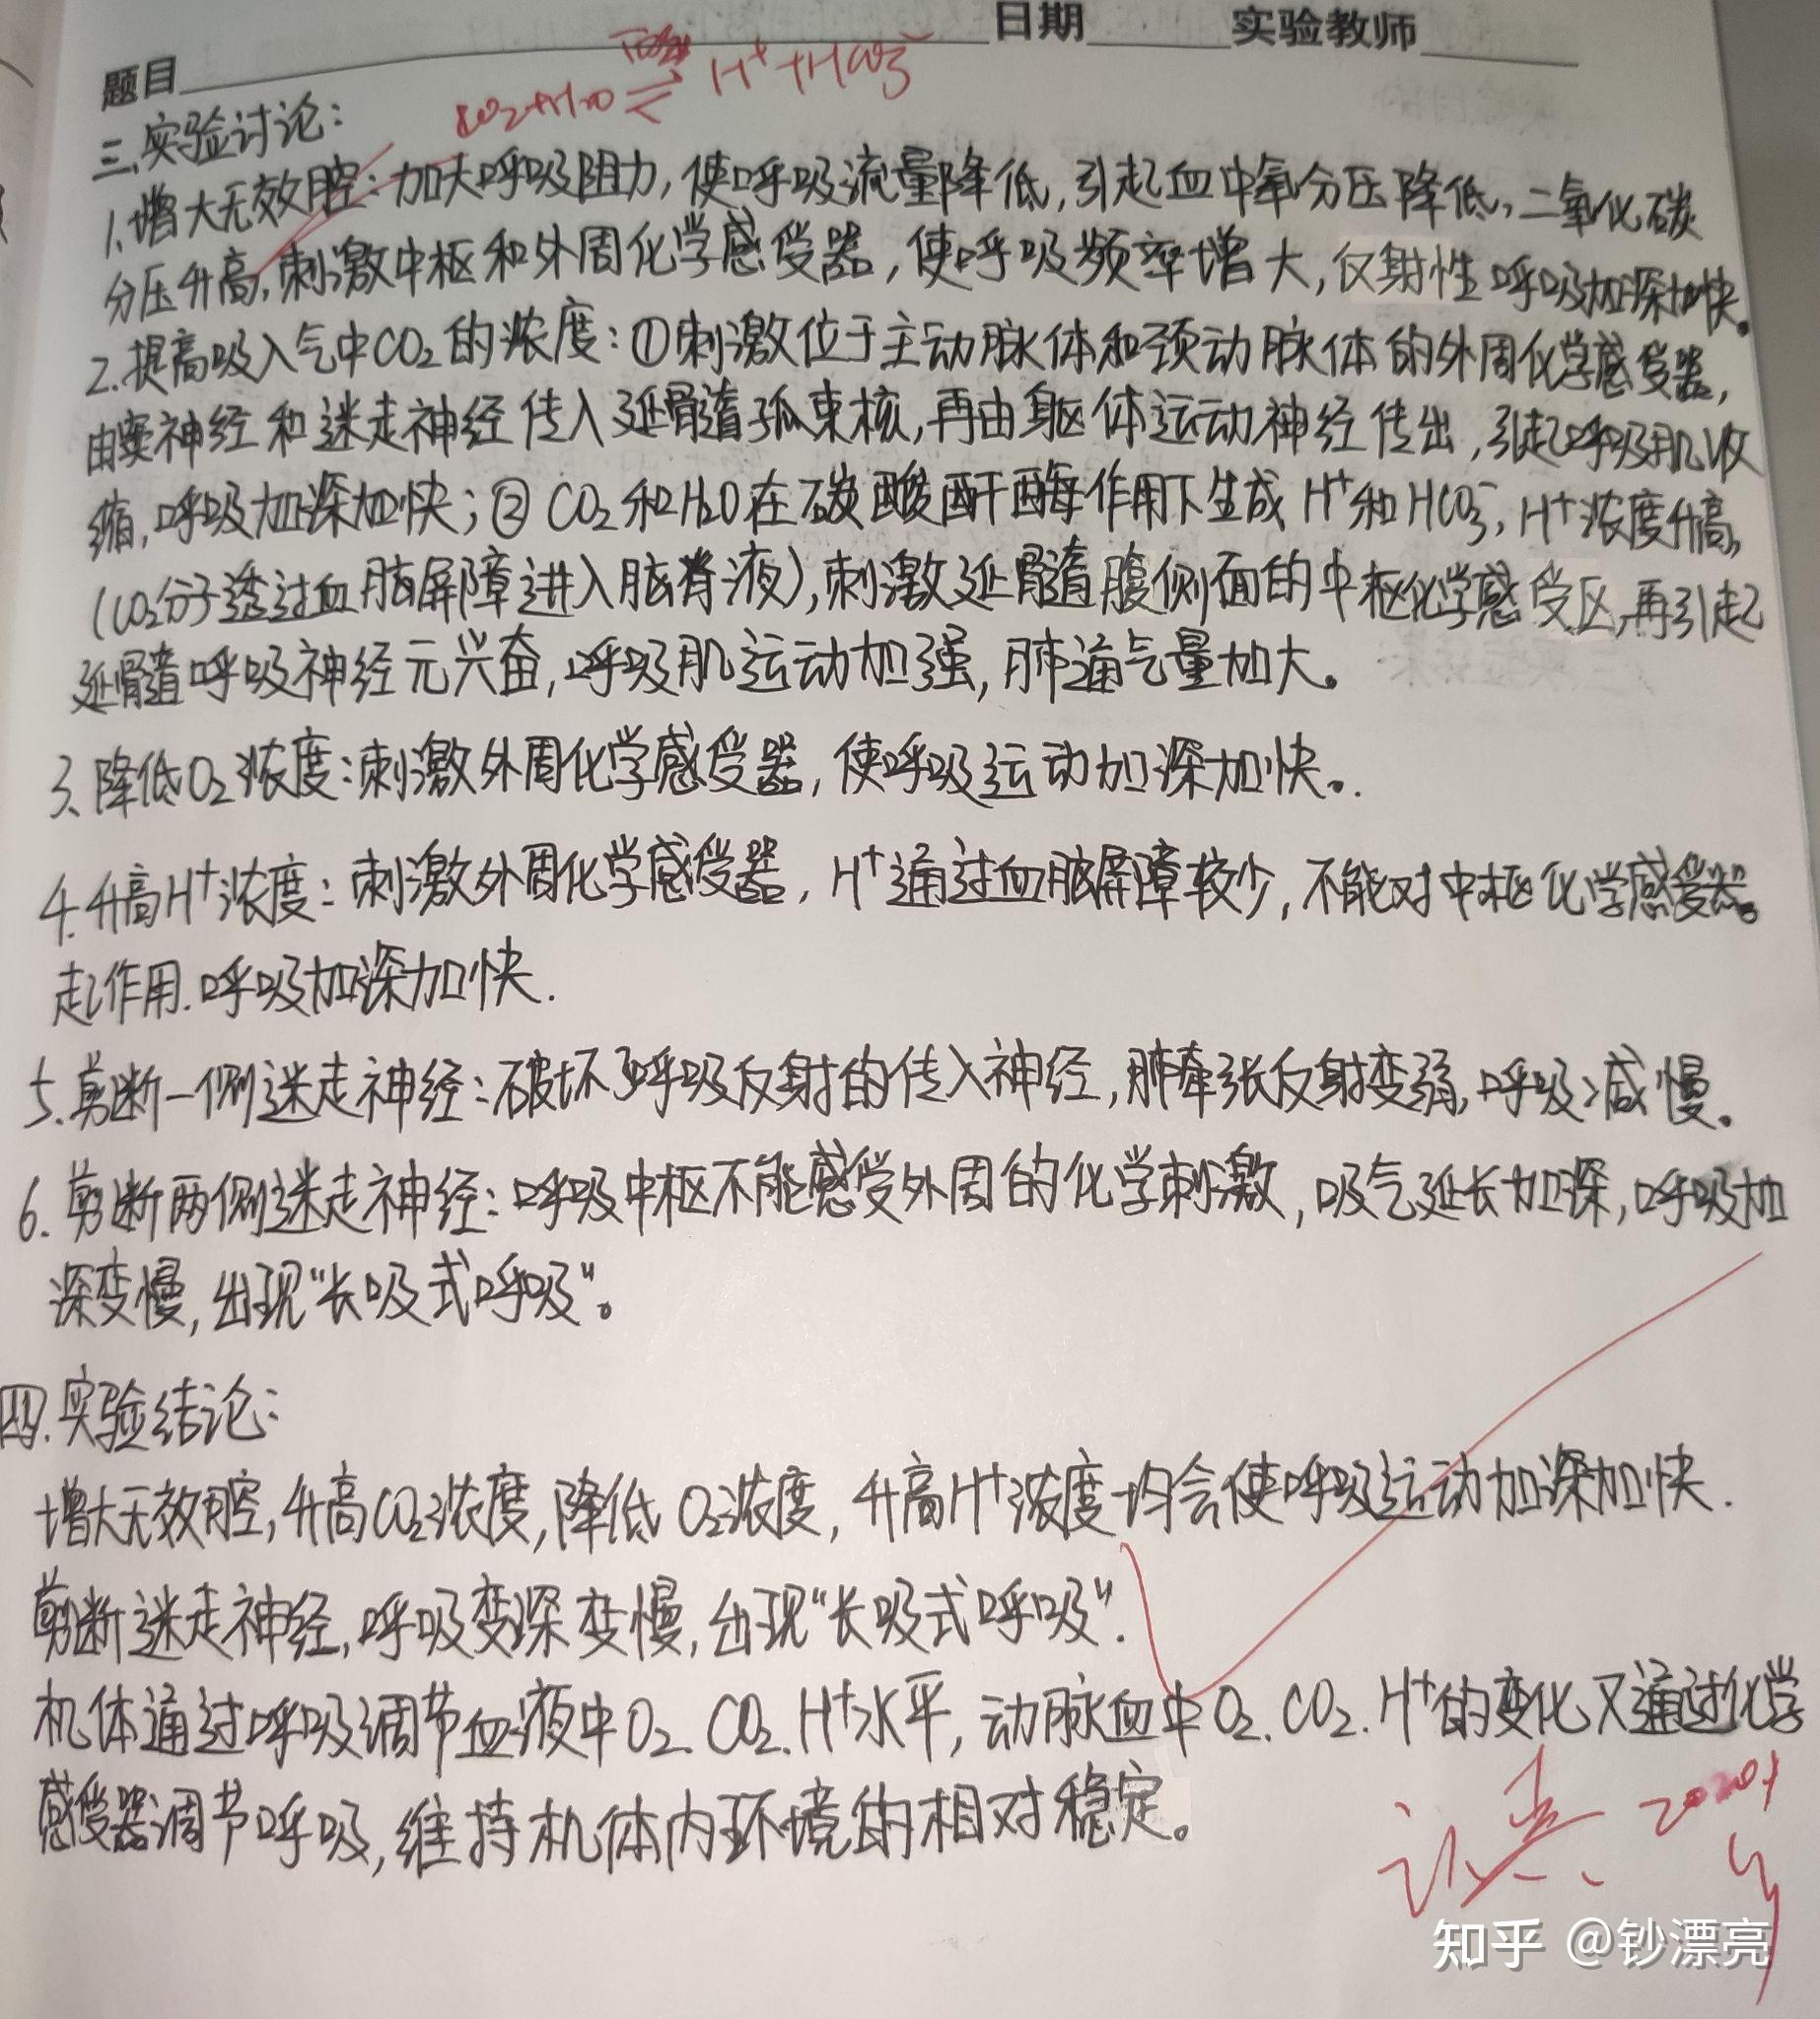 日期 实验教师
题目
CO₂+H₂O ⇌ H⁺+HCO₃⁻
三.实验讨论:
1.增大无效腔:加大呼吸阻力,使呼吸流量降低,引起血中氧分压降低,二氧化碳
分压升高,刺激中枢和外周化学感受器,使呼吸频率增大,反射性呼吸加深加快。
2.提高吸入气中CO₂的浓度:①刺激位于主动脉体和颈动脉体的外周化学感受器,
由窦神经和迷走神经传入延髓孤束核,再由躯体运动神经传出,引起呼吸肌收
缩,呼吸加深加快;②CO₂和H₂O在碳酸酐酶作用下生成H⁺和HCO₃⁻,H⁺浓度升高,
(CO₂分子透过血脑屏障进入脑脊液),刺激延髓腹侧面的中枢化学感受区,再引起
延髓呼吸神经元兴奋,呼吸肌运动加强,肺通气量加大。
3、降低O₂浓度:刺激外周化学感受器,使呼吸运动加深加快。.
4.升高H⁺浓度:刺激外周化学感受器,H⁺通过血脑屏障较少,不能对中枢化学感受器。
起作用.呼吸加深加快.
5.剪断一侧迷走神经:破坏了呼吸反射的传入神经,肺牵张反射变弱,呼吸减慢。
6.剪断两侧迷走神经:呼吸中枢不能感受外周的化学刺激,吸气延长加深,呼吸加
深变慢,出现“长吸式呼吸”。
四.实验结论:
增大无效腔,升高CO₂浓度,降低O₂浓度,升高H⁺浓度均会使呼吸运动加深加快.
剪断迷走神经,呼吸变深变慢,出现“长吸式呼吸”.
机体通过呼吸调节血液中O₂.CO₂.H⁺水平,动脉血中O₂.CO₂.H⁺的变化又通过化学
感受器调节呼吸,维持机体内环境的相对稳定。
知乎 @钞漂亮